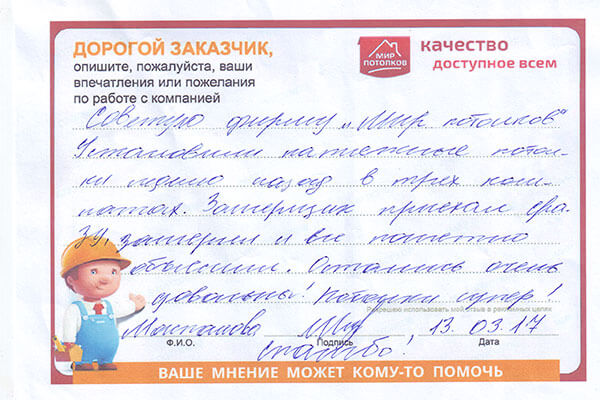 ДОРОГОЙ ЗАКАЗЧИК,
опишите, пожалуйста, ваши
впечатления или пожелания
по работе с компанией
МИР
ПОТОЛКОВ
качество
доступное всем
Советую фирму „Мир потолков“
Установили натяжные потол-
ки назад в трех ком-
натах. Замерщик приехал сра-
зу, замерил и все понятно
объяснили. Остались очень
довольны! Потолки супер!
Разрешаю использовать мой отзыв в рекламных целях
13.03.17
Ф.И.О. Подпись Дата
спасибо!
ВАШЕ МНЕНИЕ МОЖЕТ КОМУ-ТО ПОМОЧЬ